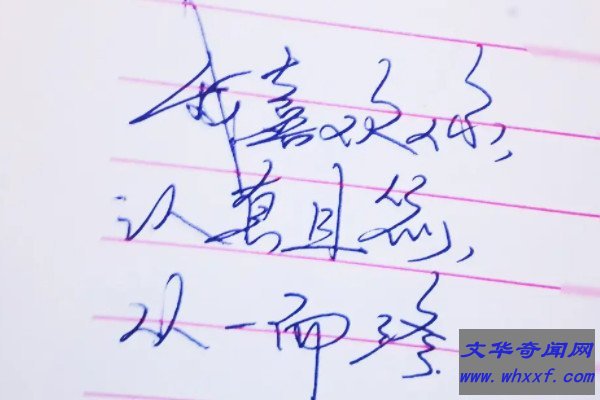 我喜欢你,
认真且怂,
从一而终.
文华奇闻网
www.whxxf.com